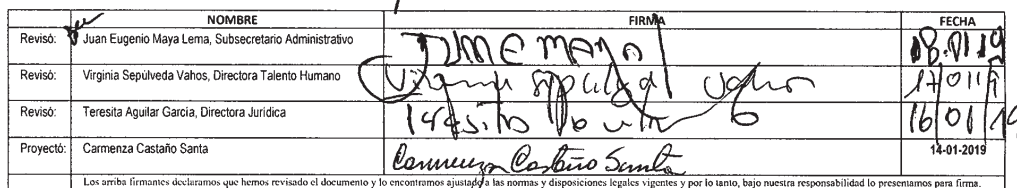 NOMBRE FIRMA FECHA
Revisó: Juan Eugenio Maya Lema, Subsecretario Administrativo 18.01.19
Revisó: Virginia Sepúlveda Vahos, Directora Talento Humano Virginia Sepúlveda Vahos 17/01/19
Revisó: Teresita Aguilar García, Directora Jurídica Teresita Aguilar G 16/01/19
Proyectó: Carmenza Castaño Santa Carmenza Castaño Santa 14-01-2019
Los arriba firmantes declaramos que hemos revisado el documento y lo encontramos ajustado a las normas y disposiciones legales vigentes y por lo tanto, bajo nuestra responsabilidad lo presentamos para firma.